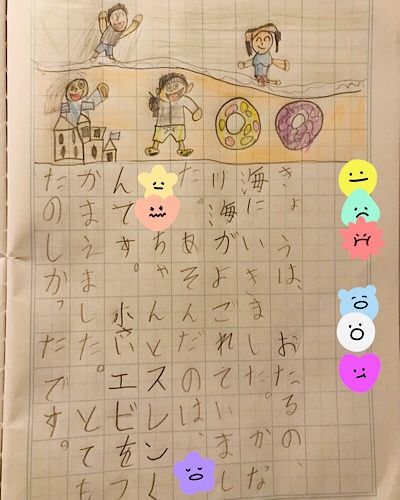 きょうは、おたるの、
海にいきました。かな
り海がよごれていまし
た。あそんだのは、
ちゃんとスレンく
んです。小さいエビをつ
かまえました。とても
たのしかったです。